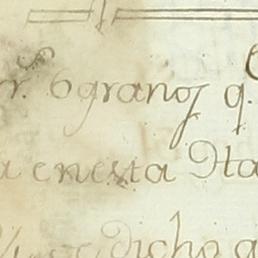 6 granos q.
a enesta Ita
dicho q